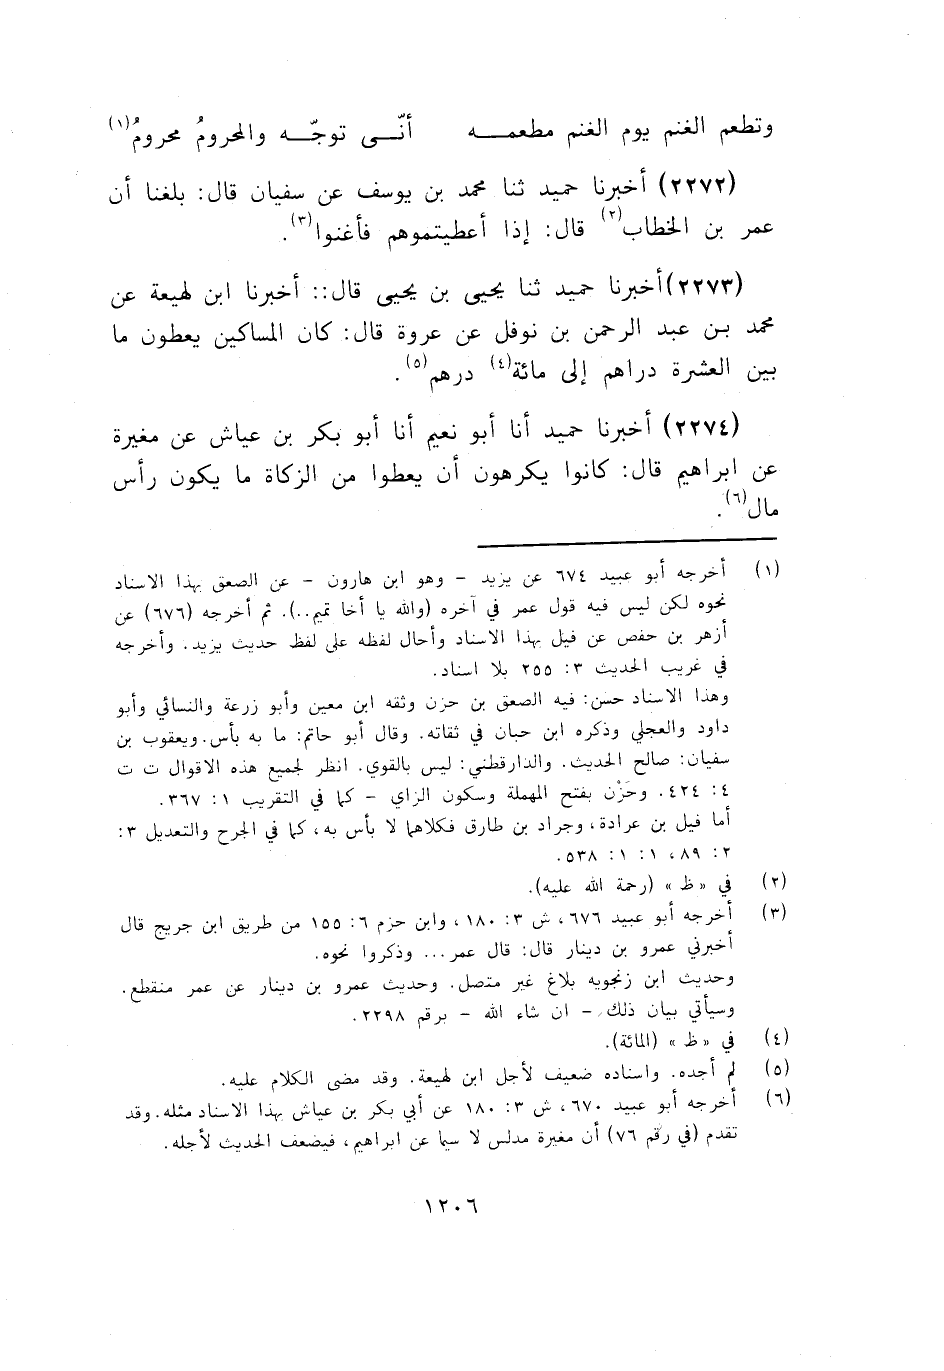 وتطعم الغنم يوم الغنم مطعمـــه أنّـــى توجّـــه والمحرومُ محرومُ(١)
(٢٢٧٢) أخبرنا حميد ثنا محمد بن يوسف عن سفيان قال: بلغنا أن
عمر بن الخطاب(٢) قال: إذا أعطيتموهم فأغنوا(٣).
(٢٢٧٣)أخبرنا حميد ثنا يحيى بن يحيى قال:: أخبرنا ابن لهيعة عن
محمد بـن عبد الرحمن بن نوفل عن عروة قال: كان المساكين يعطون ما
بين العشرة دراهم إلى مائة(٤) درهم(٥).
(٢٢٧٤) أخبرنا حميد أنا أبو نعيم أنا أبو بكر بن عياش عن مغيرة
عن ابراهيم قال: كانوا يكرهون أن يعطوا من الزكاة ما يكون رأس
مال(٦).
(١) أخرجه أبو عبيد ٦٧٤ عن يزيد - وهو ابن هارون - عن الصعق بهذا الاسناد
نحوه لكن ليس فيه قول عمر في آخره (والله يا أخا تميم..). ثم أخرجه (٦٧٦) عن
أزهر بن حفص عن فيل بهذا الاسناد وأحال لفظه على لفظ حديث يزيد. وأخرجه
في غريب الحديث ٣: ٢٥٥ بلا اسناد.
وهذا الاسناد حسن: فيه الصعق بن حزن وثقه ابن معين وأبو زرعة والنسائي وأبو
داود والعجلي وذكره ابن حبان في ثقاته. وقال أبو حاتم: ما به بأس. ويعقوب بن
سفيان: صالح الحديث. والدارقطني: ليس بالقوي. انظر لجميع هذه الاقوال ت ت
٤: ٤٢٤. وحَزْن بفتح المهملة وسكون الزاي - كما في التقريب ١: ٣٦٧.
أما فيل بن عرادة، وجراد بن طارق فكلاهما لا بأس به، كما في الجرح والتعديل ٣:
٢: ٨٩، ١: ١: ٥٣٨.
(٢) في «ظ» (رحمة الله عليه).
(٣) أخرجه أبو عبيد ٦٧٦، ش ٣: ١٨٠، وابن حزم ٦: ١٥٥ من طريق ابن جريج قال
أخبرني عمرو بن دينار قال: قال عمر... وذكروا نحوه.
وحديث ابن زنجويه بلاغ غير متصل. وحديث عمرو بن دينار عن عمر منقطع.
وسيأتي بيان ذلك - ان شاء الله - برقم ٢٢٩٨.
(٤) في «ظ» (المائة).
(٥) لم أجده. واسناده ضعيف لأجل ابن لهيعة. وقد مضى الكلام عليه.
(٦) أخرجه أبو عبيد ٦٧٠، ش ٣: ١٨٠ عن أبي بكر بن عياش بهذا الاسناد مثله. وقد
تقدم (في رقم ٧٦) أن مغيرة مدلس لا سيما عن ابراهيم، فيضعف الحديث لأجله.
١٢٠٦